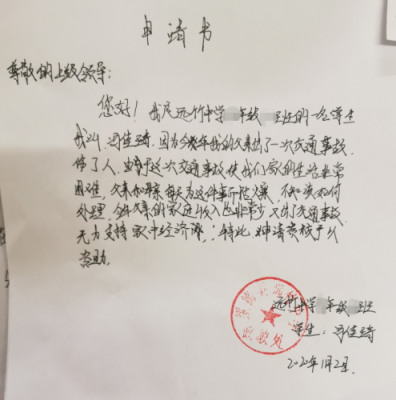 申请书
尊敬的上级领导:
您好!我是远竹中学 年级 班的一名学生
我叫 佳琦,因为今年我的父亲出了一次交通事故,
伤了人,由于这次交通事故使我们家的生活非常
困难,父亲和母亲每天为这件事而忧愁,不知该如何
处理,今年父亲的家庭收入也非常少,又出了交通事故,
无力支持家中经济,特此,申请贵校予以
资助。
远竹中学 年级 班
学生: 佳琦